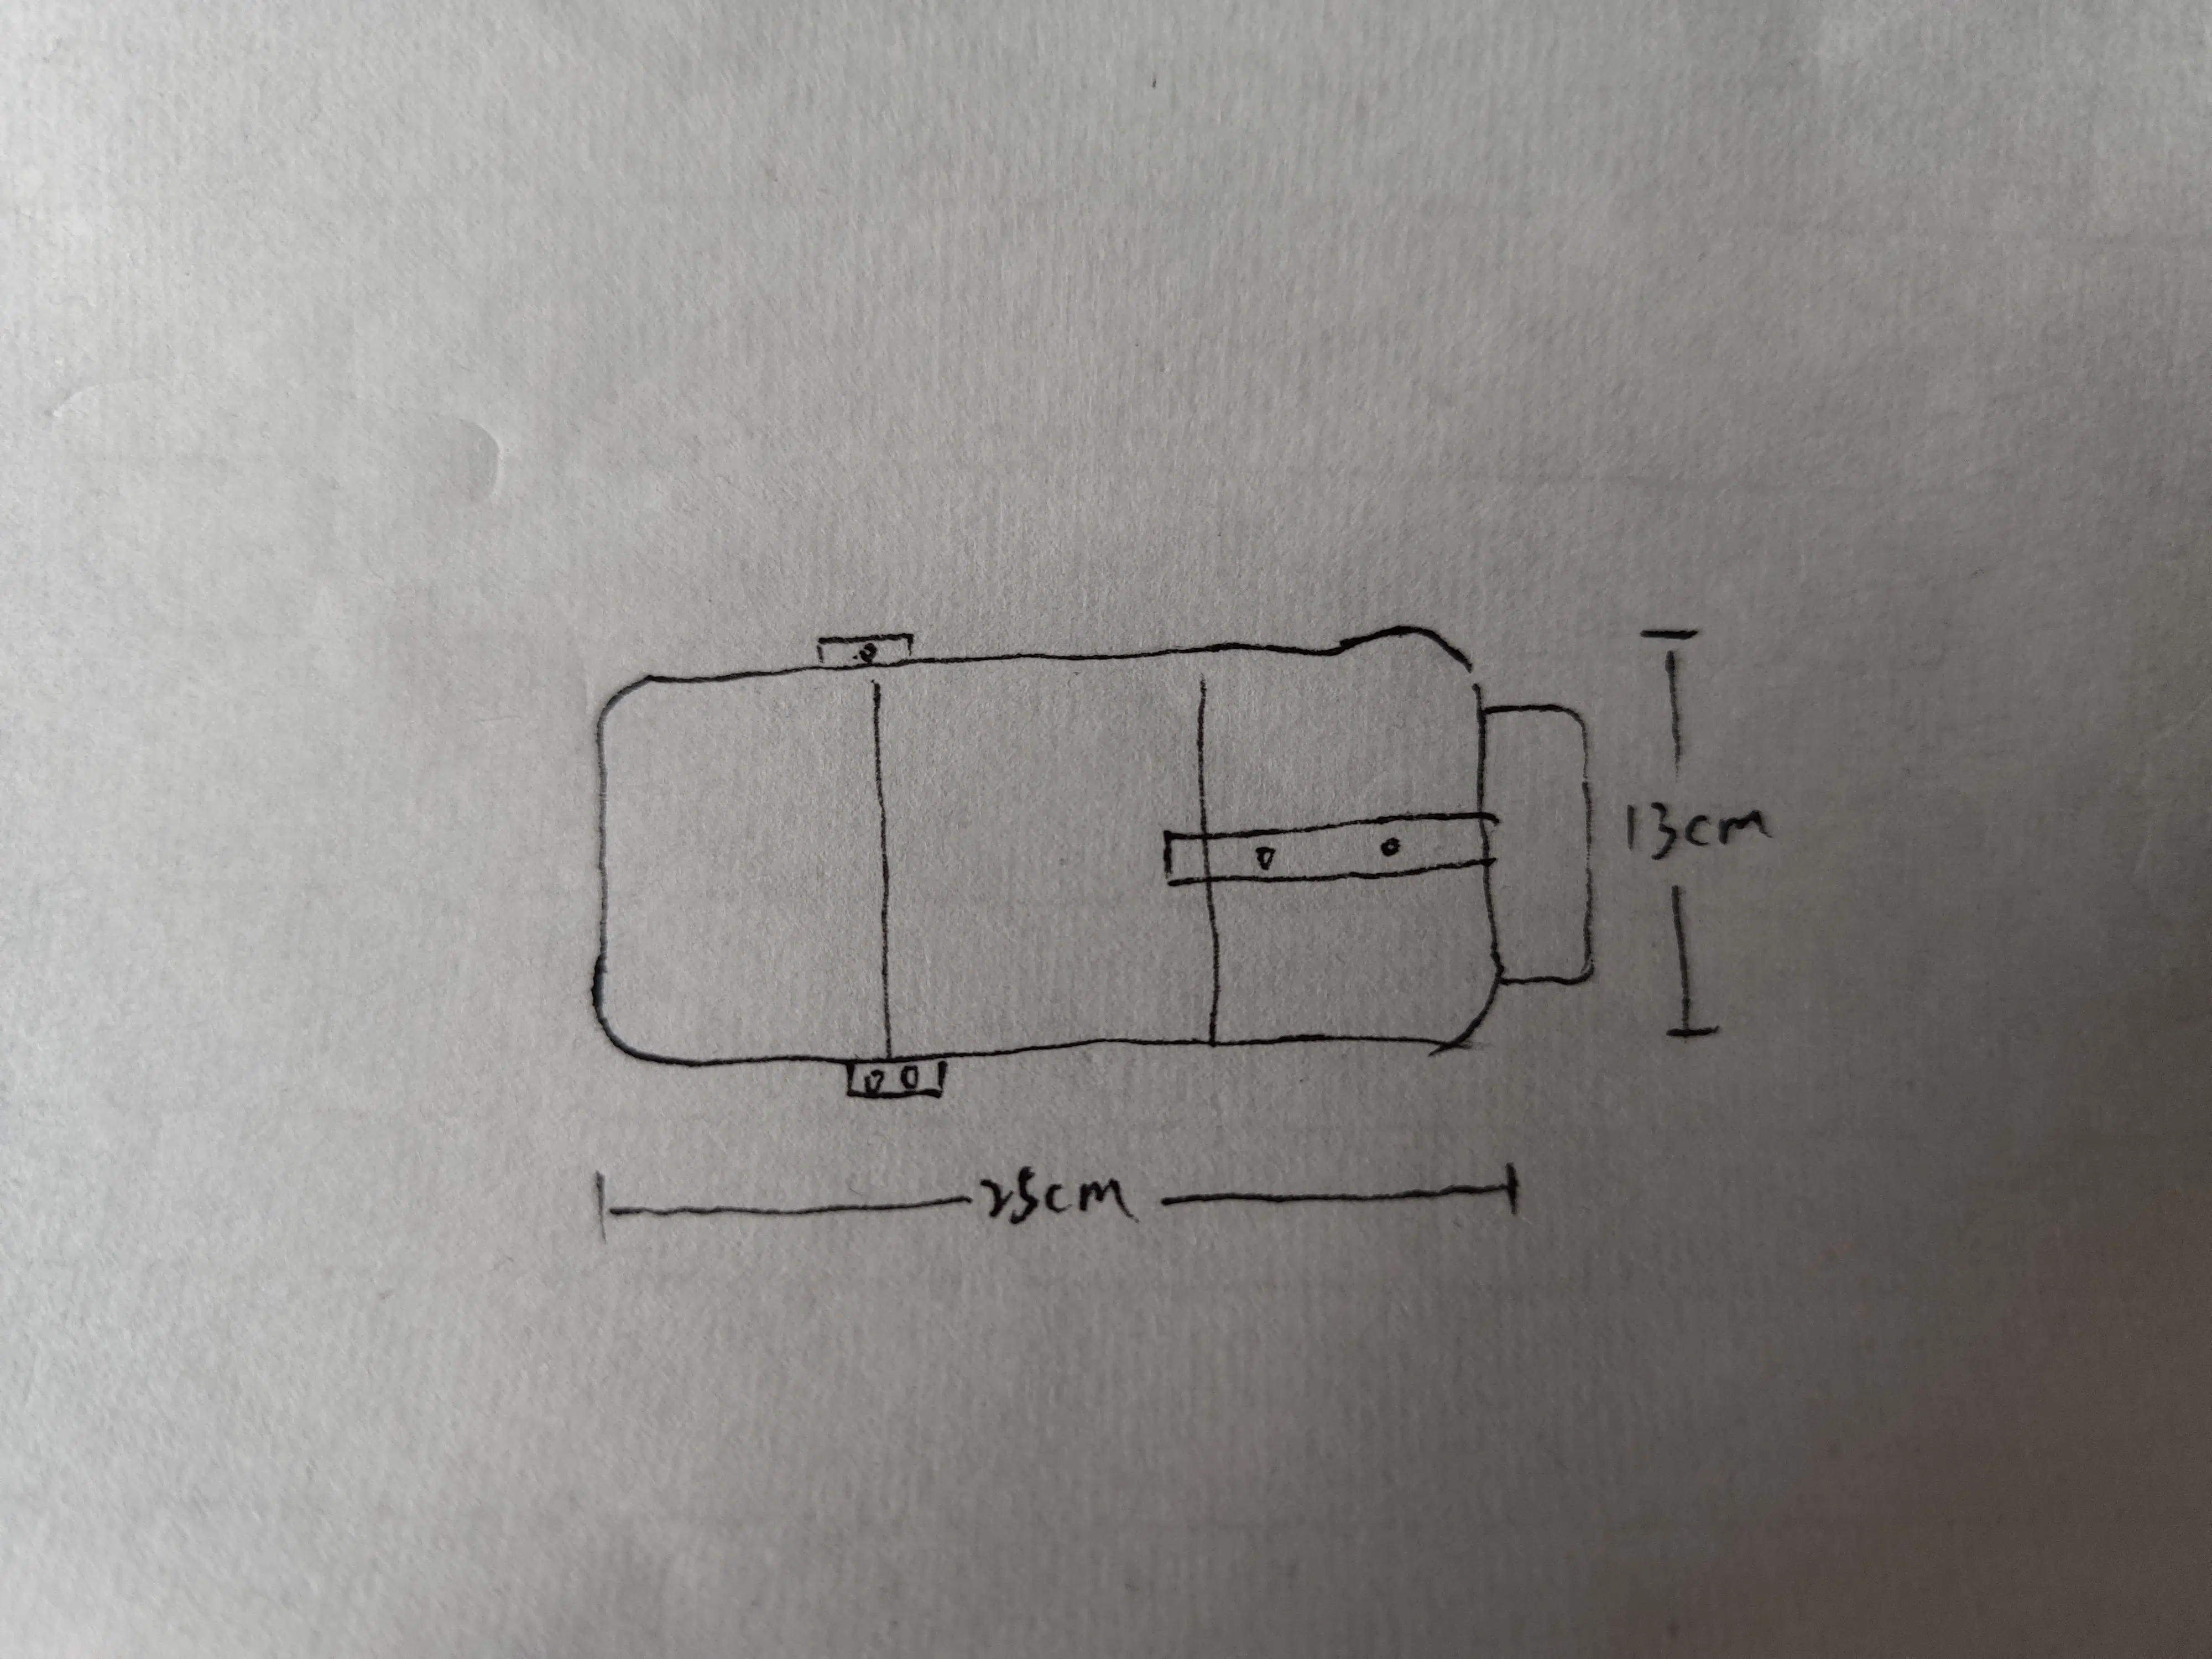 13cm
25cm